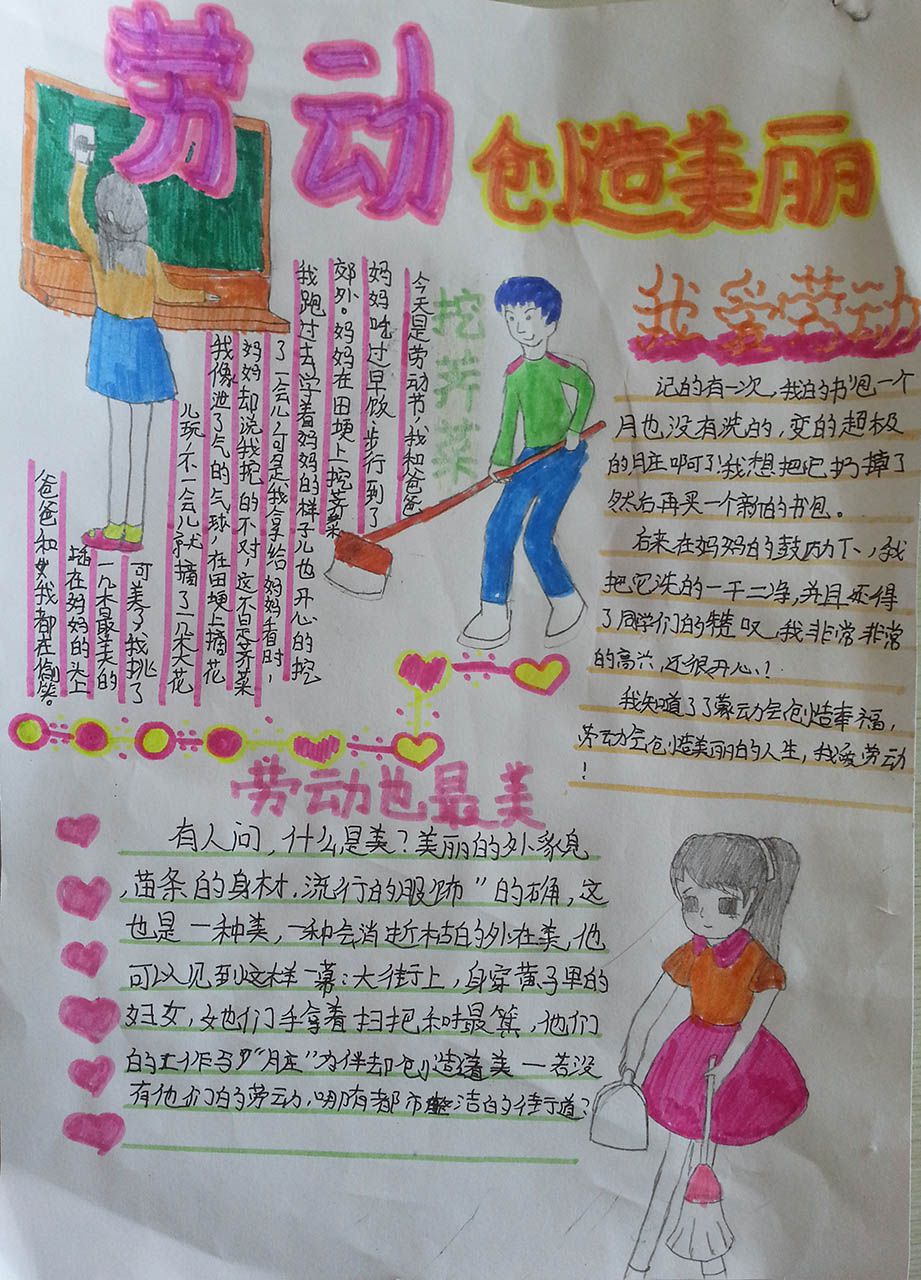 劳动
创造美丽
挖荠菜
今天是劳动节,我和爸爸
妈妈吃过早饭,步行到了
郊外。妈妈在田埂上挖荠菜
我跑过去学着妈妈的样子儿也开心的挖
了一会儿,可是我拿给妈妈看时,
妈妈却说我挖的不对,这不是荠菜
我像泄了气的气球,在田埂上摘花
儿玩,不一会儿就摘了一朵大花
可美了,我挑了
一朵最美的
插在妈妈的头上
爸爸和我都在偷笑。
我爱劳动
记的有一次,我的书包一个
月也没有洗的,变的超极
的脏啊了!我想把它扔掉了
然后再买一个新的书包。
后来在妈妈的鼓励下,我
把它洗的一干二净,并且还得
了同学们的赞叹,我非常非常
的高兴,还很开心!
我知道了了劳动会创造幸福,
劳动会创造美丽的人生,我爱劳动
!
劳动也最美
有人问,什么是美?美丽的外象
,苗条的身材.流行的服饰”的确,这
也是一种美,一种会消逝的外在美,他
可以见到这样一幕:大街上,身穿黄子里的
妇女,她们手拿着扫把和簸箕,他们
的工作与“脏”为伴却创造着美一若没
有他们的劳动,哪有都市整洁的街道?